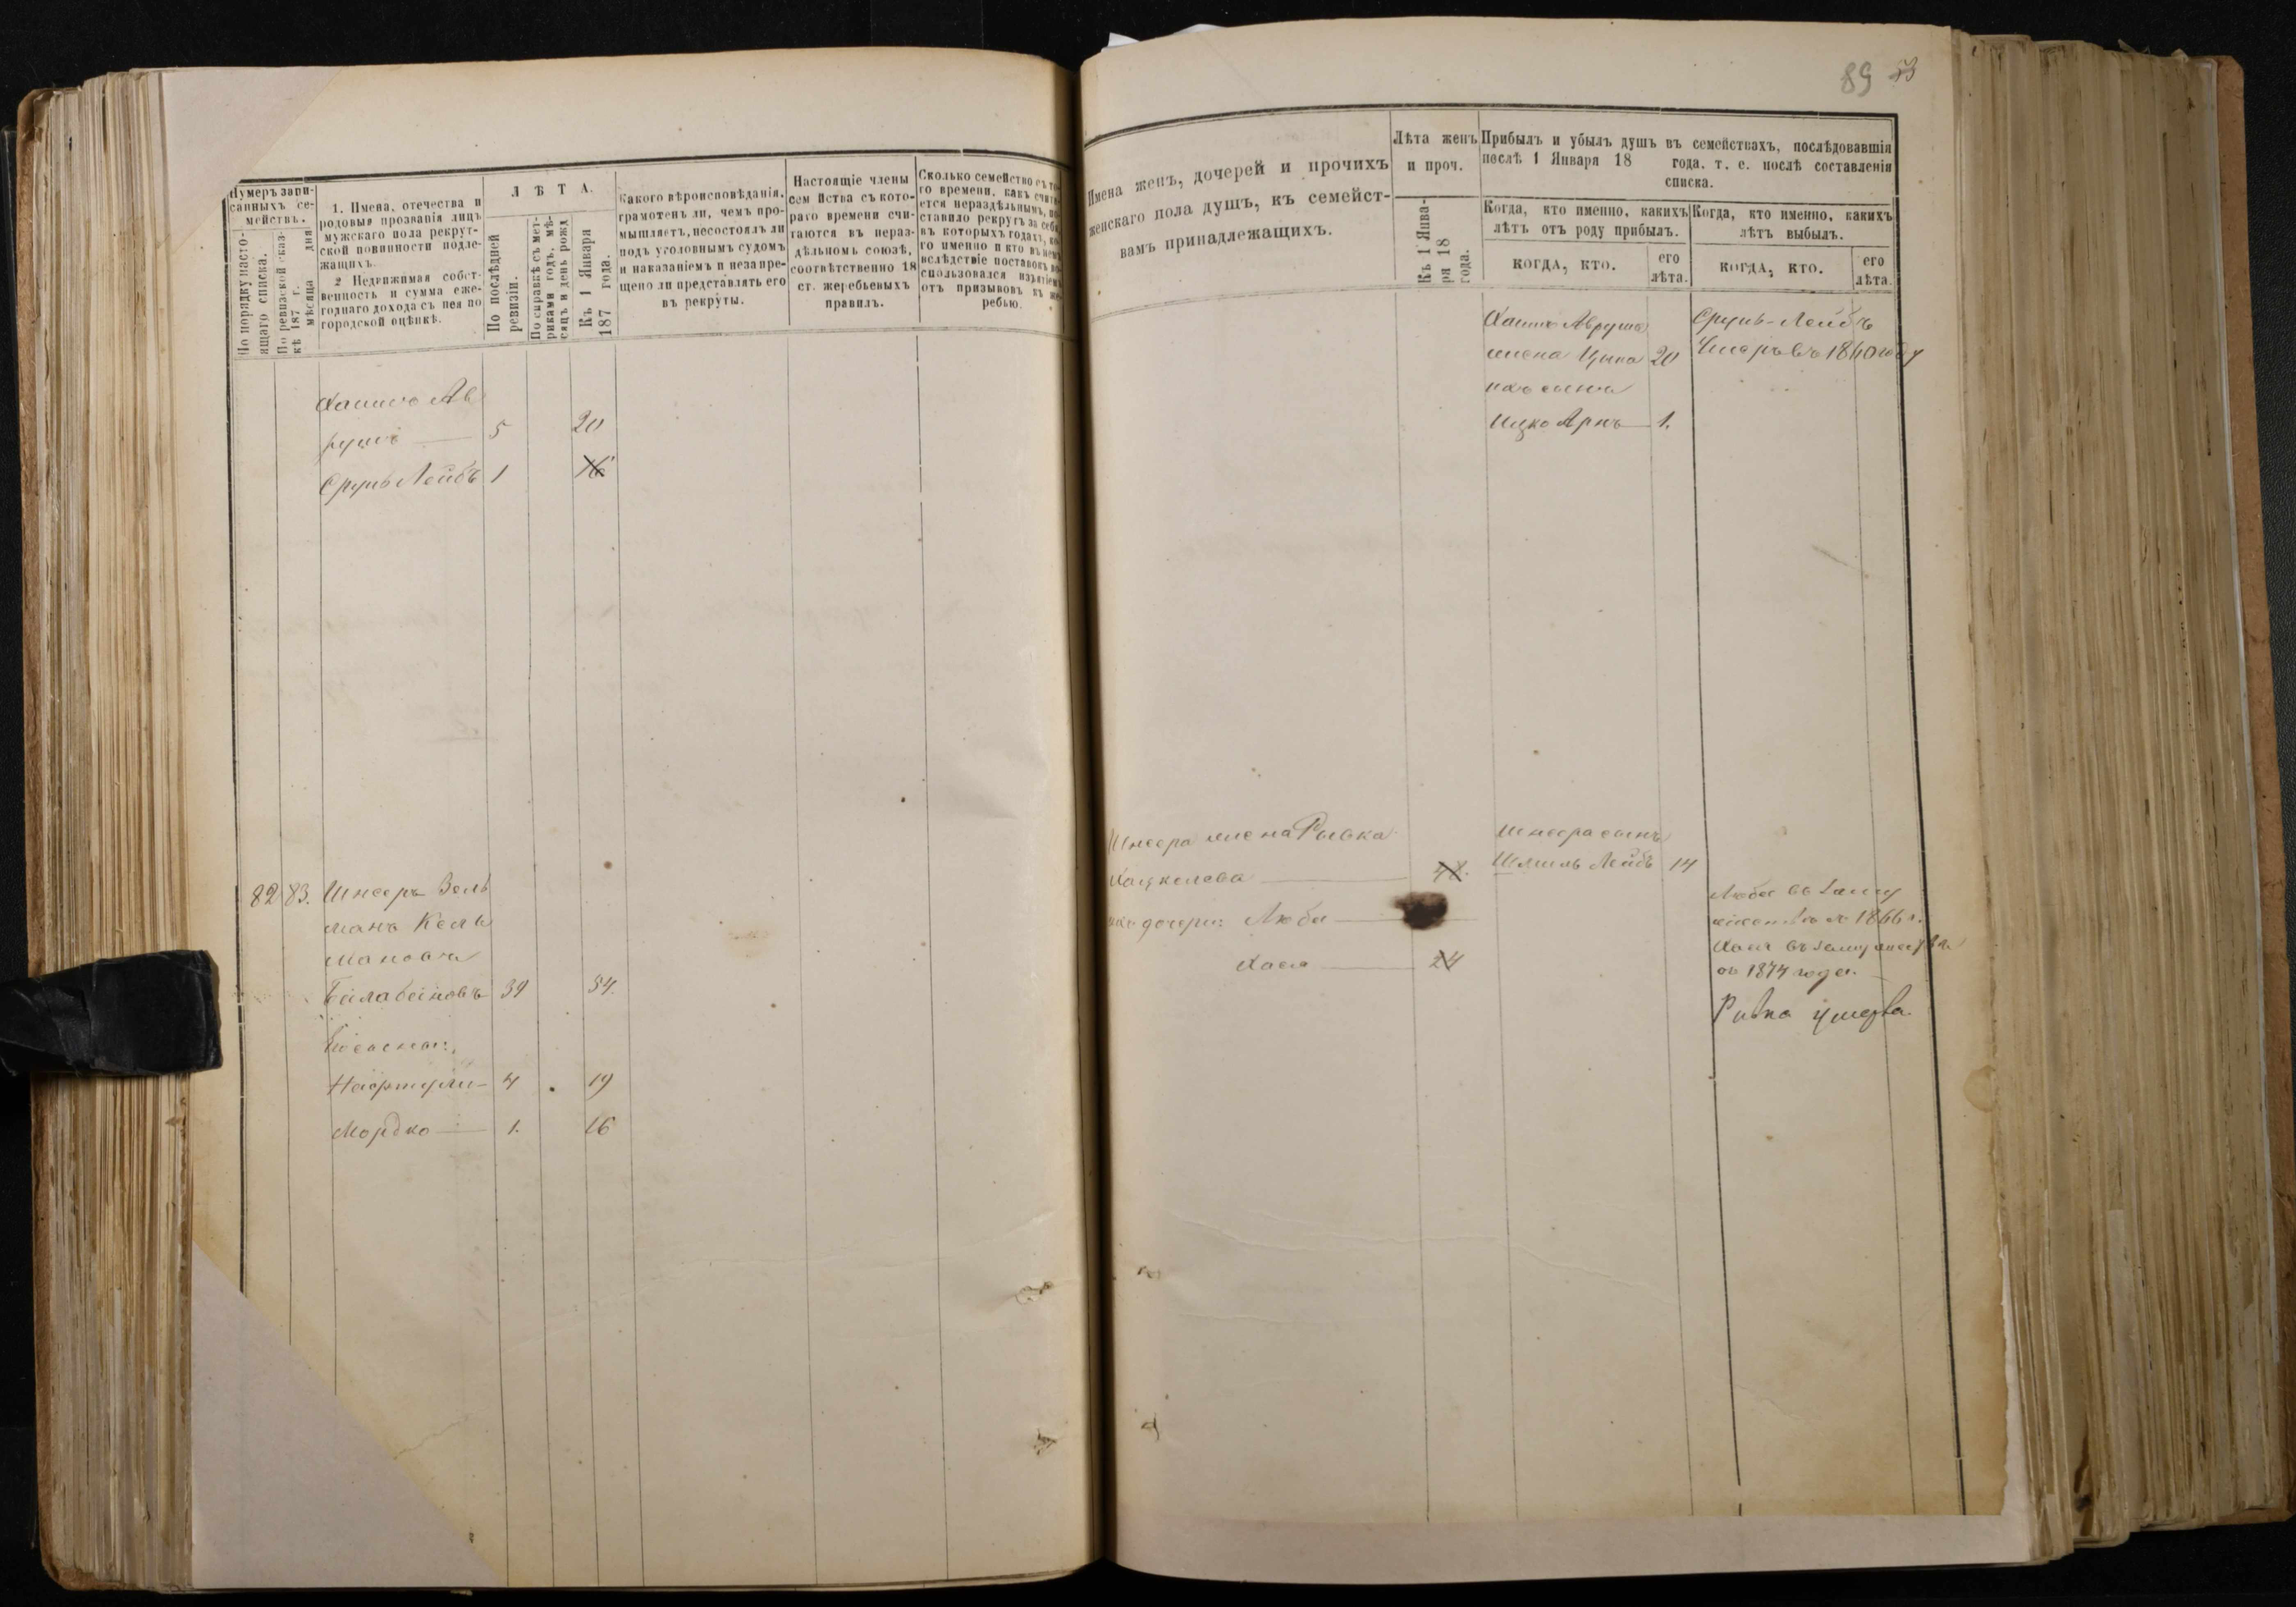 Нумеръ запи-
санныхъ се-
мействъ.
По порядку насто-
ящаго списка.
По ревизской сказ-
кѣ 187 г.
мѣсяца дня
1. Имена, отечества и
родовыя прозванія лицъ
мужскаго пола рекрут-
ской повинности подле-
жащихъ.
2 Недвижимая собст-
венность и сумма еже-
годнаго дохода съ нея по
городской оцѣнкѣ.
ЛѢТА.
По послѣдней
ревизіи.
По справкѣ съ мет-
риками годъ, мѣ-
сяцъ и день рожд
Къ 1 Января
187 года.
Какого вѣроисповѣданія,
грамотенъ ли, чемъ про-
мышляетъ, несостоялъ ли
подъ уголовнымъ судомъ
и наказаніемъ и незапре-
щено ли представлять его
въ рекруты.
Настоящіе члены
сем йства съ кото-
раго времени счи-
таются въ нераз-
дѣльномъ союзѣ,
соотвѣтственно 18
ст. жеребьевыхъ
правилъ.
Сколько семейство съ то-
го времени, какъ счита-
ется нераздѣльнымъ, по-
ставило рекрутъ за себя,
въ которыхъ годахъ, ко-
го именно и кто въ немъ
вслѣдствіе поставокъ во-
спользовался изъятіемъ
отъ призывовъ къ же-
ребью.
Хаимъ Ав
румъ 5 20
Сруль Лейбъ 1 16
82 83. Шнееръ Зель
манъ Кель
мановъ
Балабановъ 39 54.
Его сына:
Нафтули 4 19
Мордко 1. 16
89 53
Имена женъ, дочерей и прочихъ
женскаго пола душъ, къ семейст-
вамъ принадлежащихъ.
Лѣта женъ
и проч.
Къ 1 Янва-
ря 18
года.
Прибылъ и убылъ душъ въ семействахъ, послѣдовавшія
послѣ 1 Января 18 года, т. е. послѣ составленія
списка.
Когда, кто именно, какихъ
лѣтъ отъ роду прибылъ.
Когда, кто именно, какихъ
лѣтъ выбылъ.
КОГДА, КТО.
его
лѣта.
КОГДА, КТО.
его
лѣта.
Хаима Аврума
жена Цына 20
ихъ сынъ
Ицко Аронъ 1.
Сруль-Лейбъ
Умеръ въ 1860 году
Шнеера жена Рывка
Хацкелева 48.
ихъ дочери: Люба
Хася 24
Шнеера сынъ
Шмиль Лейбъ 14
Люба въ заму
жествѣ 1866 г.
Хася въ замужествѣ
съ 1874 года.
Ривка умерла